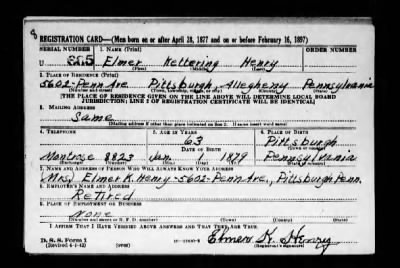 REGISTRATION CARD—(Men born on or after April 28, 1877 and on or before February 16, 1897)
SERIAL NUMBER 1. NAME (Print) ORDER NUMBER
U Elmer Kellering Henry
(First) (Middle) (Last)
2. PLACE OF RESIDENCE (Print)
5602-Penn Ave. Pittsburgh Allegheny Pennsylvania
(Number and street) (Town, township, village, or city) (County) (State)
[THE PLACE OF RESIDENCE GIVEN ON THE LINE ABOVE WILL DETERMINE LOCAL BOARD
JURISDICTION; LINE 2 OF REGISTRATION CERTIFICATE WILL BE IDENTICAL]
3. MAILING ADDRESS
Same
[Mailing address if other than place indicated on line 2. If same insert word same]
4. TELEPHONE 5. AGE IN YEARS 6. PLACE OF BIRTH
63 Pittsburgh
DATE OF BIRTH (Town or county)
Montrose 8823 Jan. 1879 Pennsylvania
(Exchange) (Number) (Mo.) (Day) (Yr.) (State or country)
7. NAME AND ADDRESS OF PERSON WHO WILL ALWAYS KNOW YOUR ADDRESS
Mrs. Elmer K. Henry-5602-Penn Ave., Pittsburgh Penn.
8. EMPLOYER'S NAME AND ADDRESS
Retired
9. PLACE OF EMPLOYMENT OR BUSINESS
None
(Number and street or R. F. D. number) (Town) (County) (State)
I AFFIRM THAT I HAVE VERIFIED ABOVE ANSWERS AND THAT THEY ARE TRUE.
D. S. S. Form 1
(Revised 4-1-42) (over) Elmer K. Henry
(Registrant's signature)